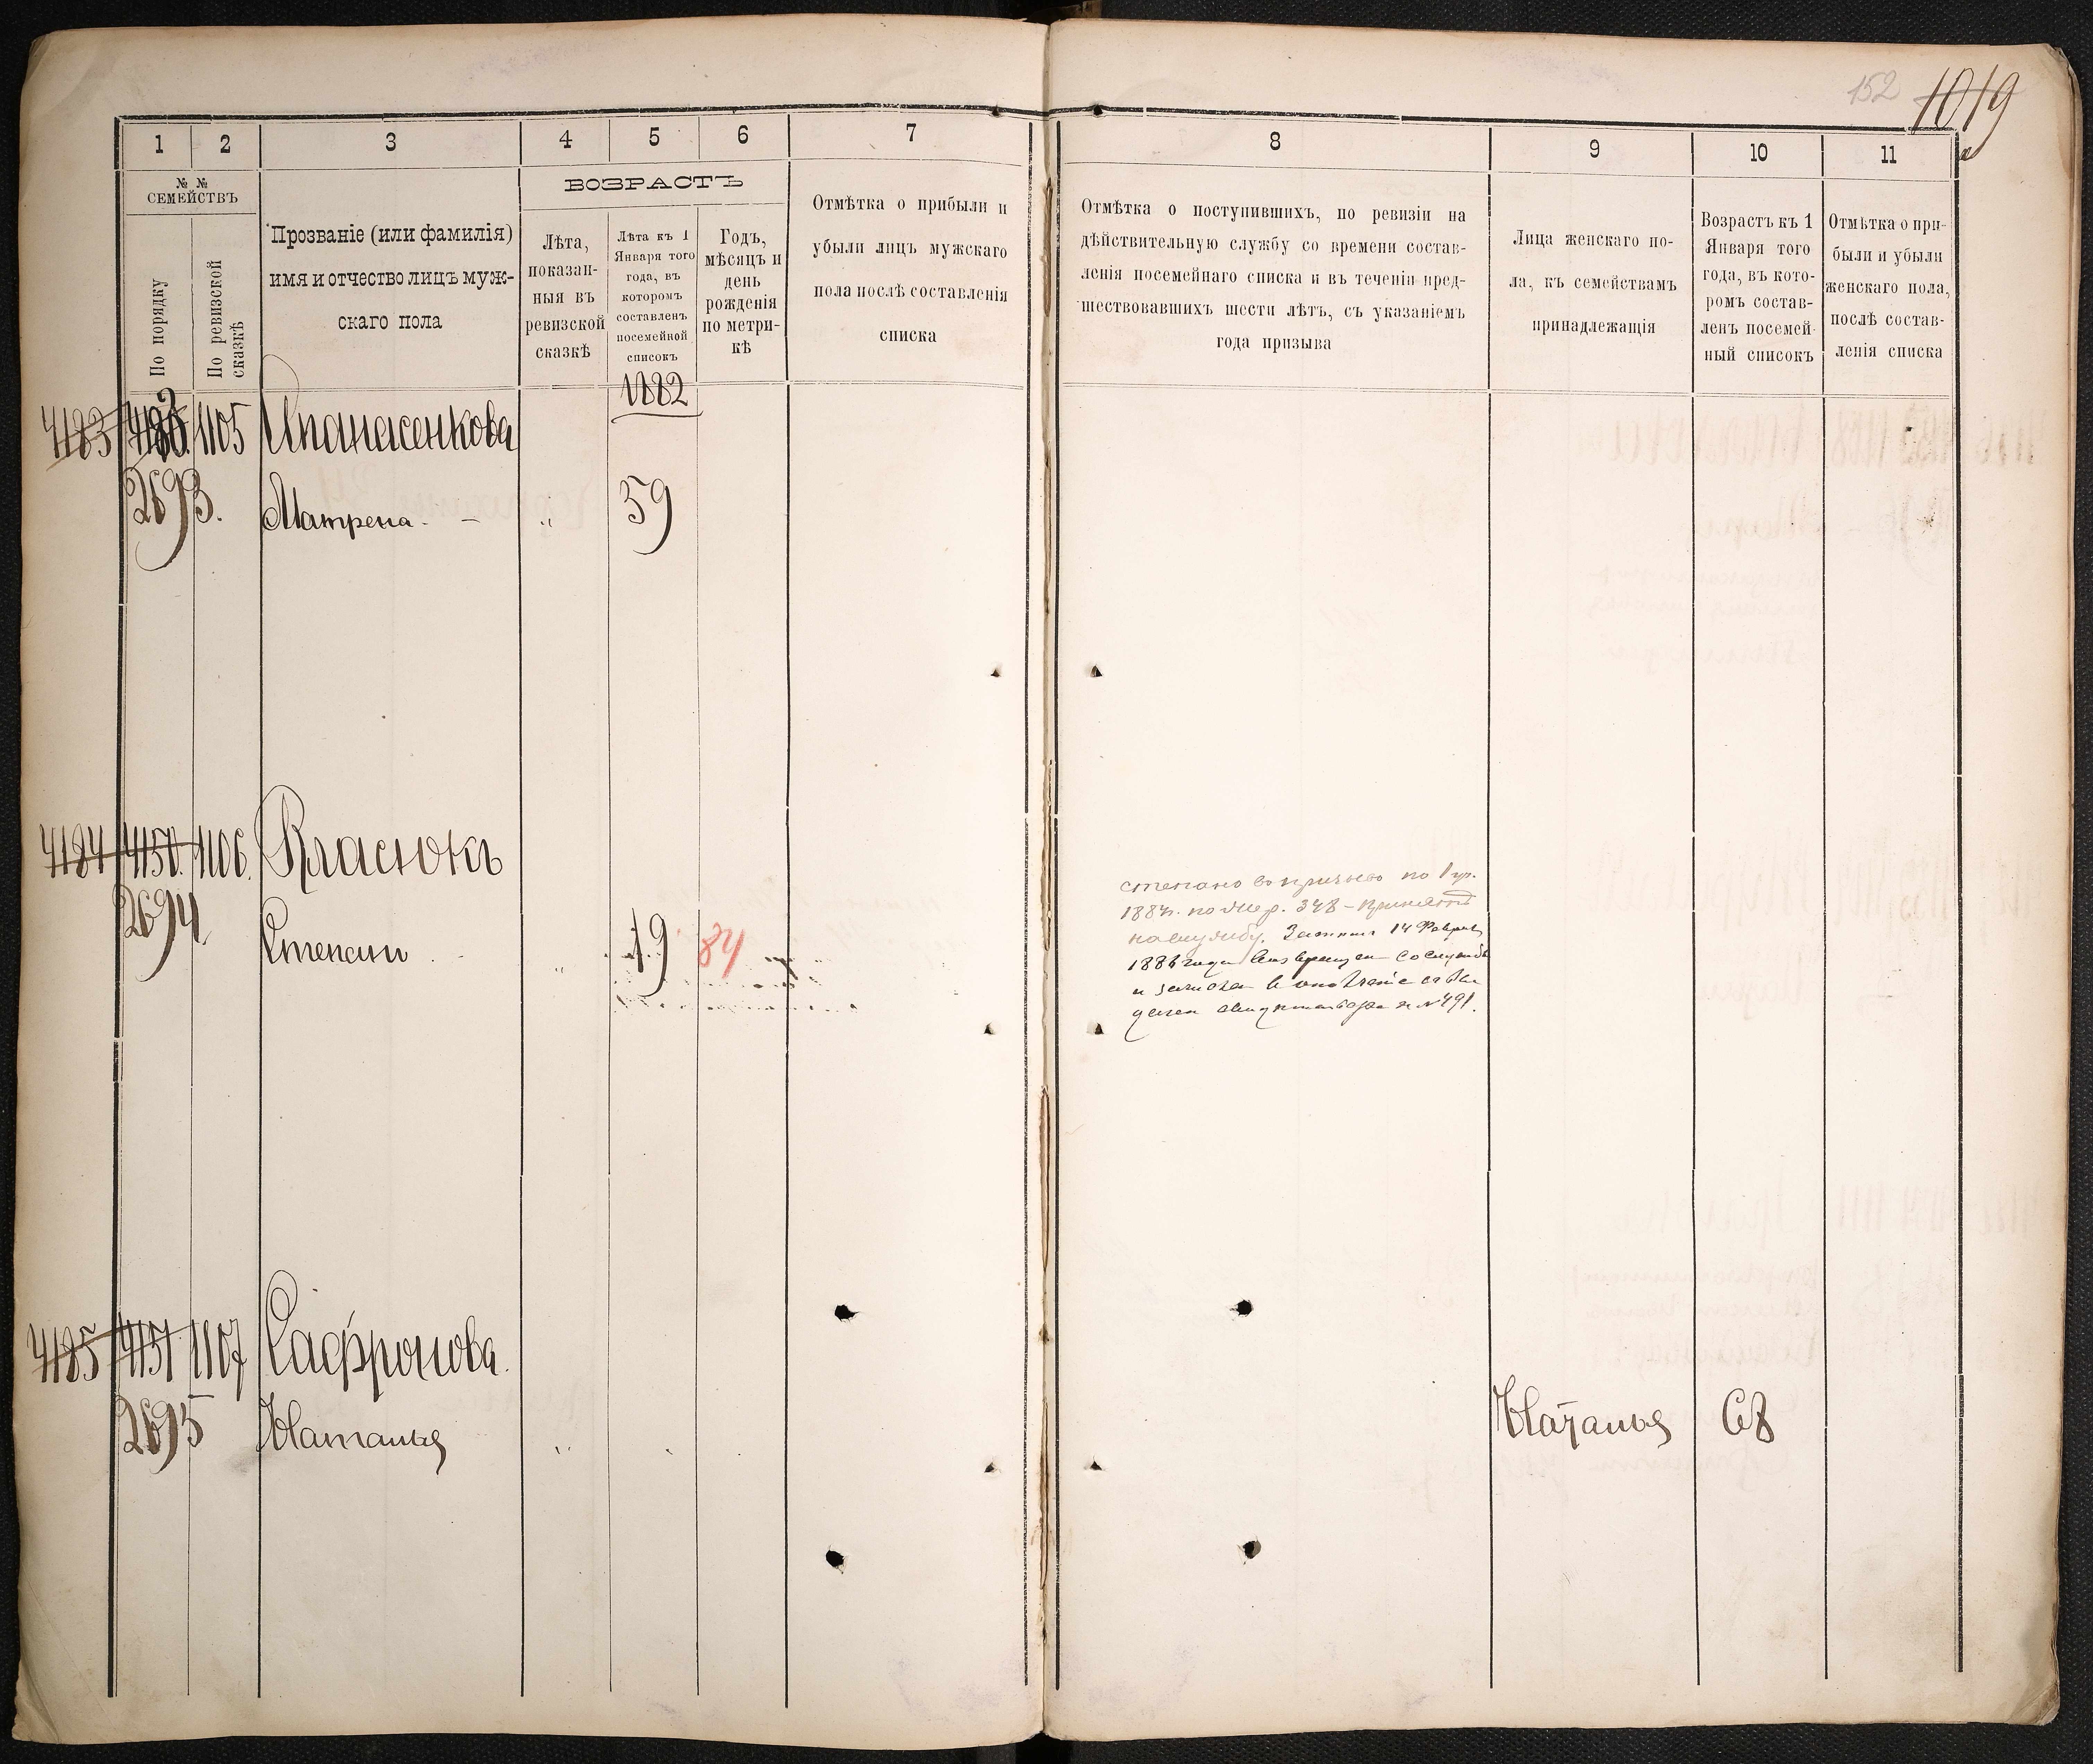 152 1019
1 2 3 4 5 6 7
№ №
СЕМЕЙСТВЪ
По порядку
По ревизской
сказкѣ
Прозваніе (или фамилія)
имя и отчество лицъ муж-
скаго пола
ВОЗРАСТЪ
Лѣта,
показан-
ныя въ
ревизской
сказкѣ
Лѣта къ 1
Января того
года, въ
которомъ
составленъ
посемейной
списокъ
1882
Годъ,
мѣсяцъ и
день
рожденія
по метри-
кѣ
Отмѣтка о прибыли и
убыли лицъ мужскаго
пола послѣ составленія
списка
4183 1105 Апанасенкова
2693. Матрена 59
4184 4150. 1106. Власюкъ
2694. Степанъ 19 84
4185 4151 1107 Сафронова.
2695 Наталья
8 9 10 11
Отмѣтка о поступившихъ, по ревизіи на
дѣйствительную службу со времени состав-
ленія посемейнаго списка и въ теченіи пред-
шествовавшихъ шести лѣтъ, съ указаніемъ
года призыва
Лица женскаго по-
ла, къ семействамъ
принадлежащія
Возрастъ къ 1
Января того
года, въ кото-
ромъ состав-
ленъ посемей-
ный списокъ
Отмѣтка о при-
были и убыли
женскаго пола,
послѣ состав-
ленія списка
по
1884. по 348 - принятъ
на службу. 14
со службы
и въ
№ 491.
Наталья 68